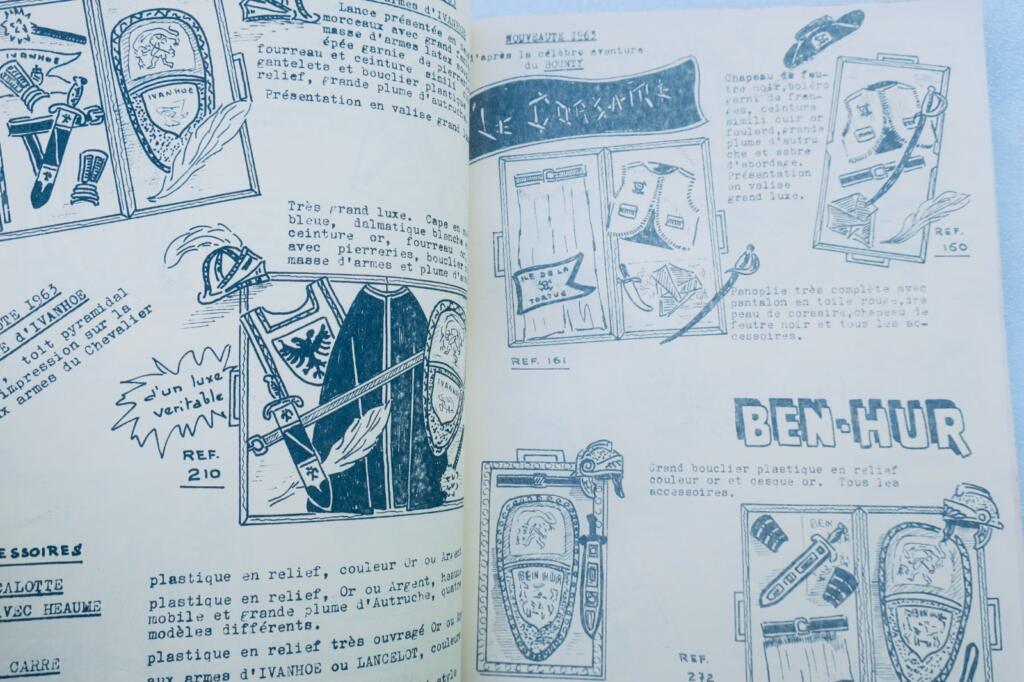 armes d'IVANHOE
Lance présentée en
morceaux avec grand
masse d'armes latex
épée garnie de pierre
fourreau et ceinture simili
gantelets et bouclier plastique
relief, grande plume d'autruche
Présentation en valise grand
IVANHOE
IVANHOE
Très grand luxe. Cape en
bleue, dalmatique blanche
ceinture or, fourreau or
avec pierreries, bouclier
masse d'armes et plume d'
1963
E d'IVANHOE
toit pyramidal
impression sur la
armes du Chevalier
d'un luxe
veritable
REF.
210
IVANHOE
ESSOIRES
CALOTTE
AVEC HEAUME
CARRE
plastique en relief, couleur Or ou Argent
plastique en relief, Or ou Argent,
mobile et grande plume d'Autruche, quatre
modèles différents.
plastique en relief très ouvragé Or ou
aux armes d'IVANHOE ou LANCELOT, couleur
NOUVEAUTE 1963
d'après la célèbre aventure
du BOUNTY
LE CORSAIRE
Chapeau de feu-
tre noir, boléro
garni de fran-
ges, ceinture
simili cuir or
foulard, grande
plume d'autru
che et sabre
d'abordage.
Présentation
en valise
grand luxe.
REF.
160
ILE DE LA
TORTUE
REF. 161
Panoplie très complète avec
pantalon en toile rouge, dra
peau de corsaire, chapeau de
feutre noir et tous les ac-
cessoires.
BEN-HUR
Grand bouclier plastique en relief
couleur or et casque or. Tous les
accessoires.
BEN HUR
BEN
BEN HUR
REF.
272